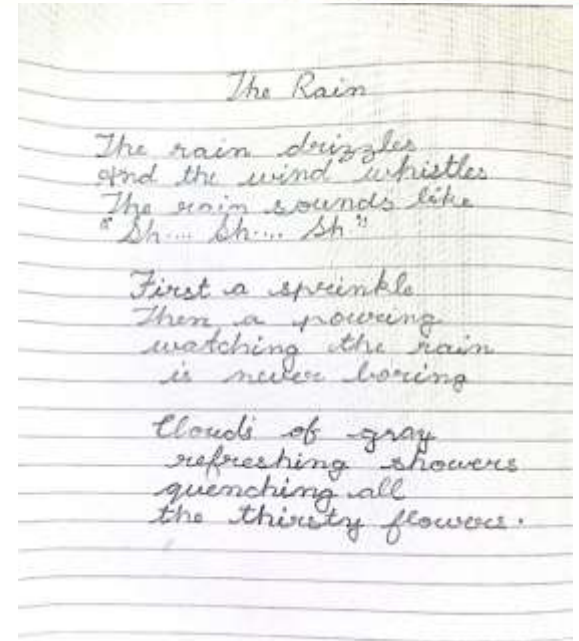 The Rain
The rain drizzles
And the wind whistles
The rain sounds like
"Sh.... Sh.... Sh"
First a sprinkle
Then a pouring
watching the rain
is never boring
Clouds of gray
refreshing showers
quenching all
the thirsty flowers.